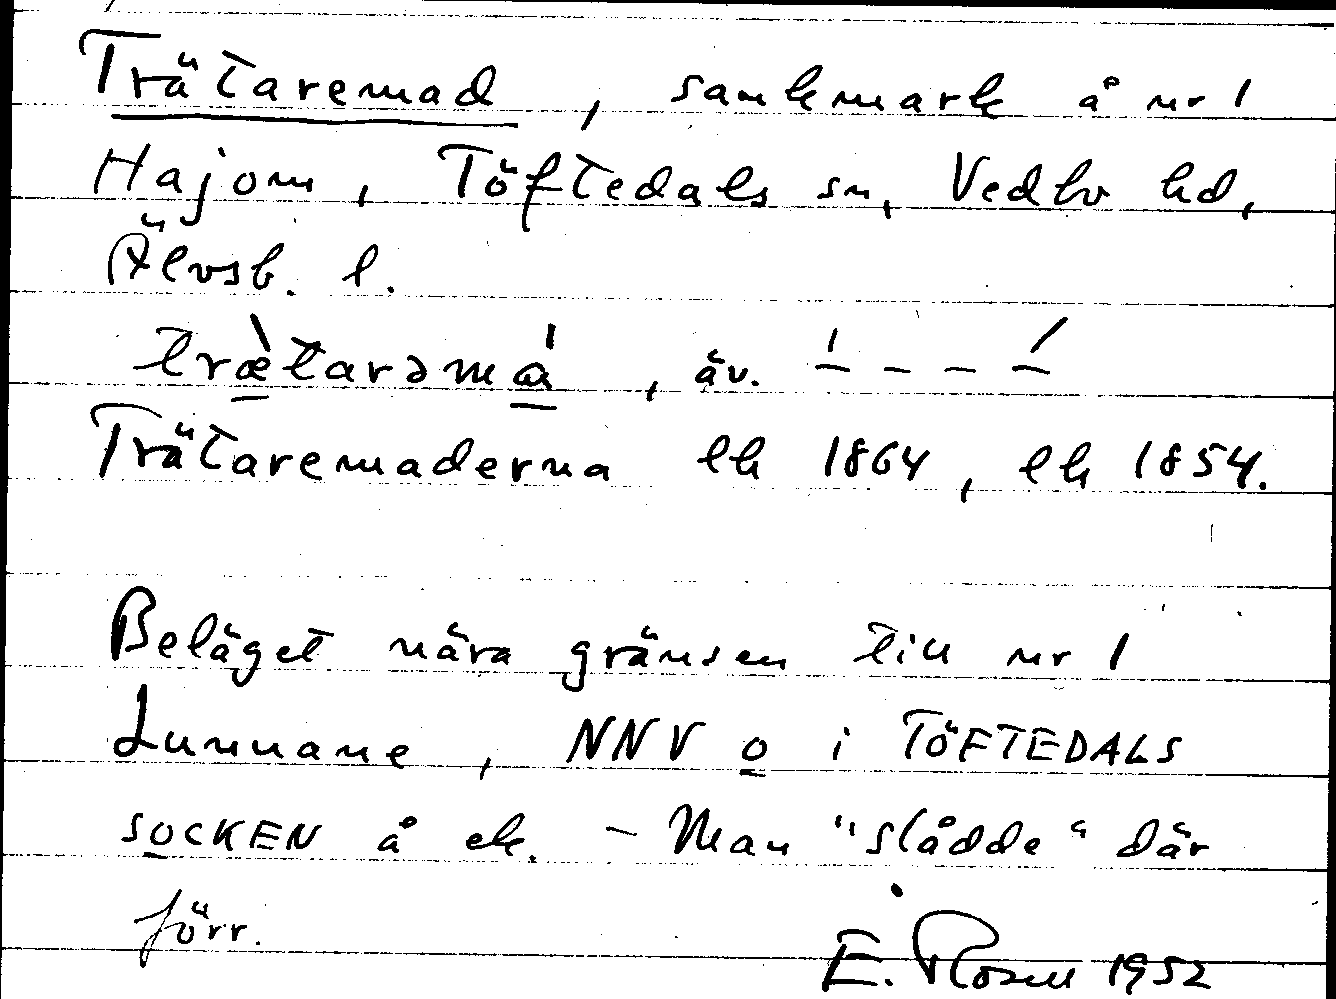 Trätaremad, sankmark å nr 1
Hajom, Töftedals sn, Vedbo hd,
Älvsb. l.
træ̀tarəmá, äv. ˈ– – – ˊ–
Trätaremaderna lh 1864, ek 1854.
Beläget nära gränsen till nr 1
Lunnane, NNV o i TÖFTEDALS
SOCKEN å ek. – Man "slådde" där
förr.
E. Rosell 1952